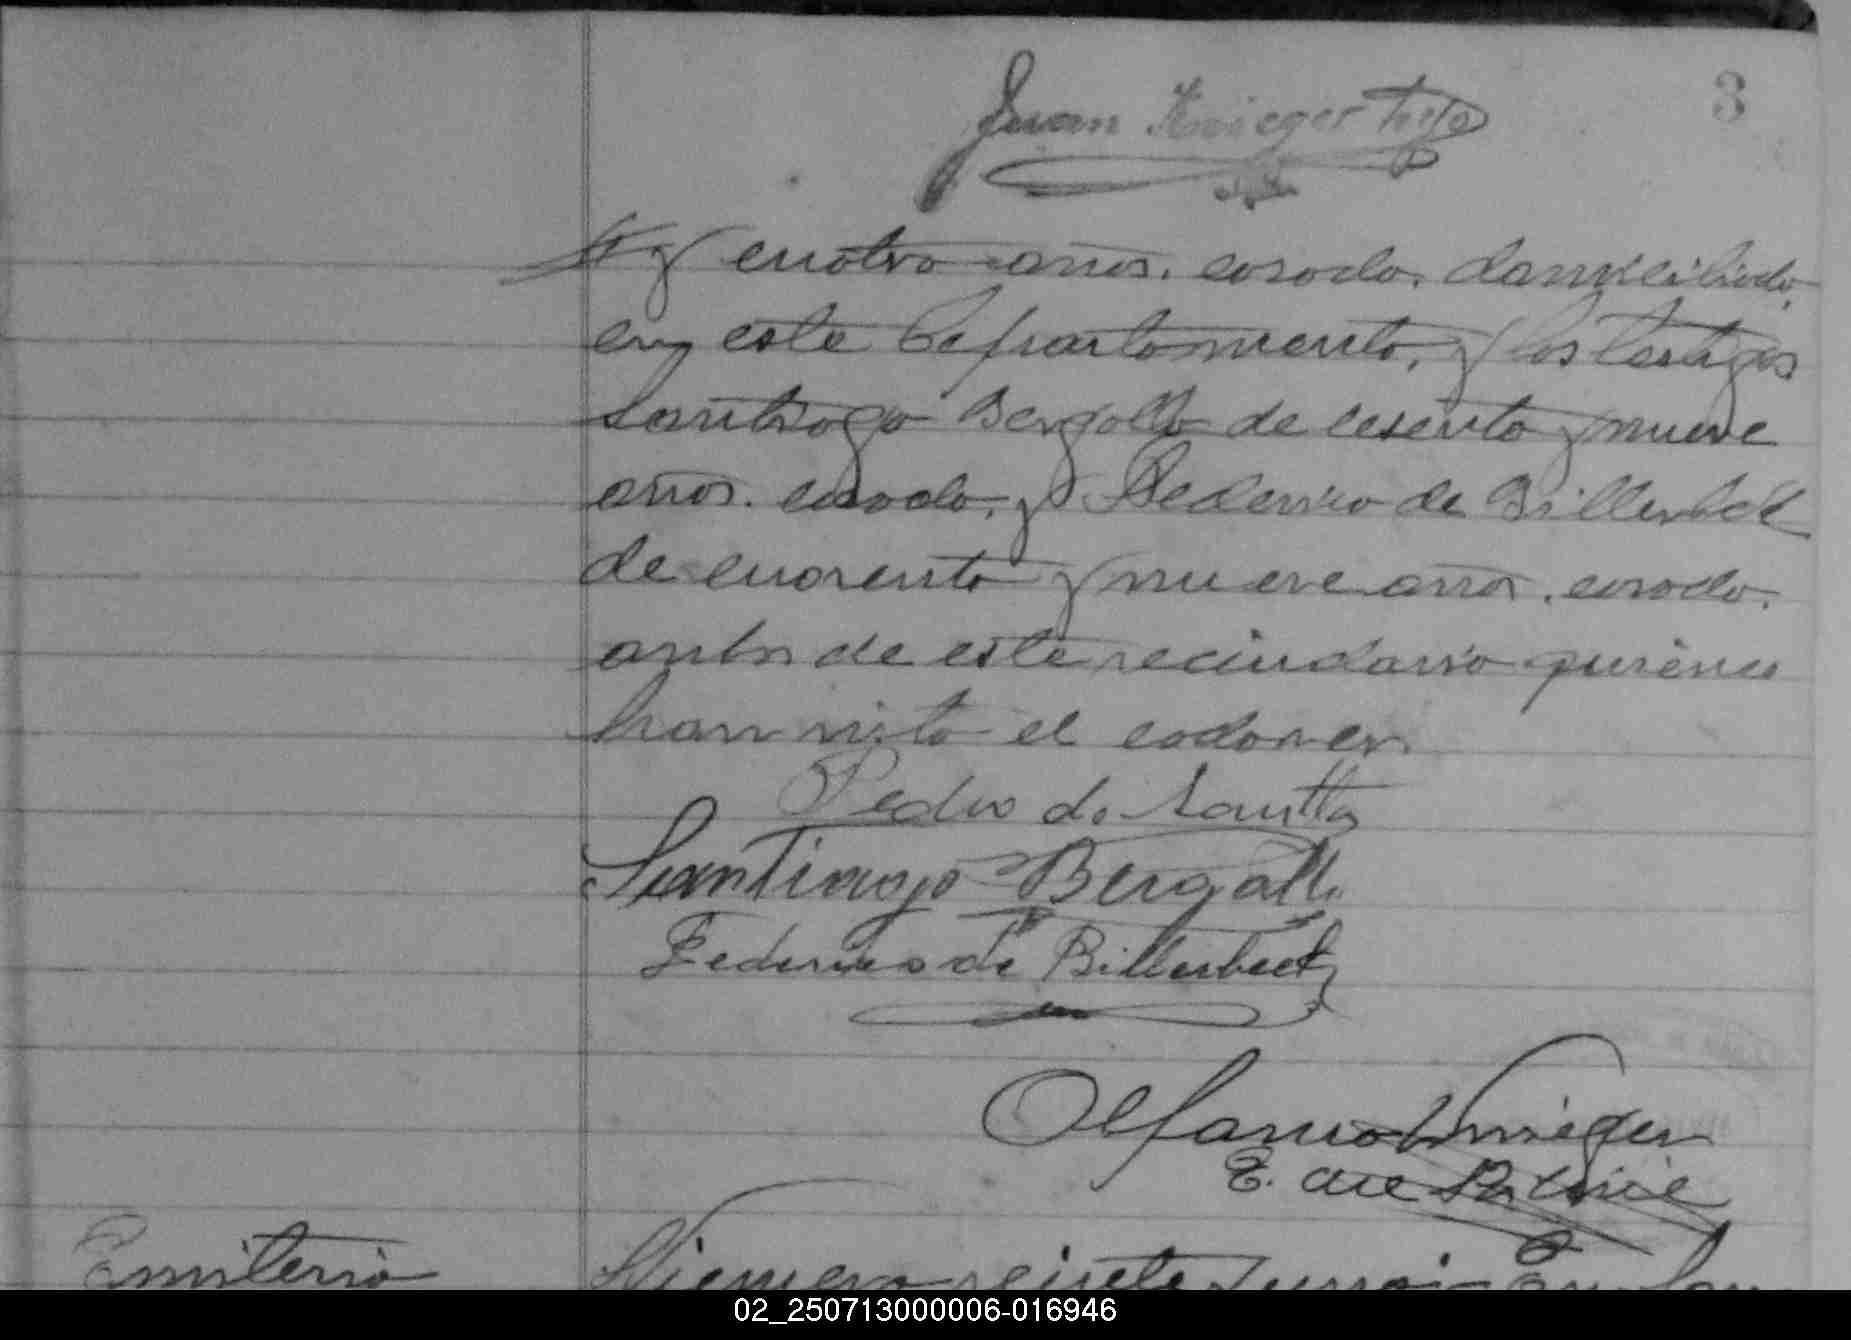 3
Juan Krieger hijo
y cuatro años. casado. domiciliado.
en este Departamento, y los testigos
Santiago Bergallo de cesenta y nueve
años. casado, y Federico de Billerbek
de cuarenta y nueve años. casado.
ambos de este vecindario quienes
han visto el cadaver
Pedro de
Santiago Bergallo
Federico de Billerbeck
Krieger
E. de
Emiterio
Numero veinte y uno: En San
02_250713000006-016946